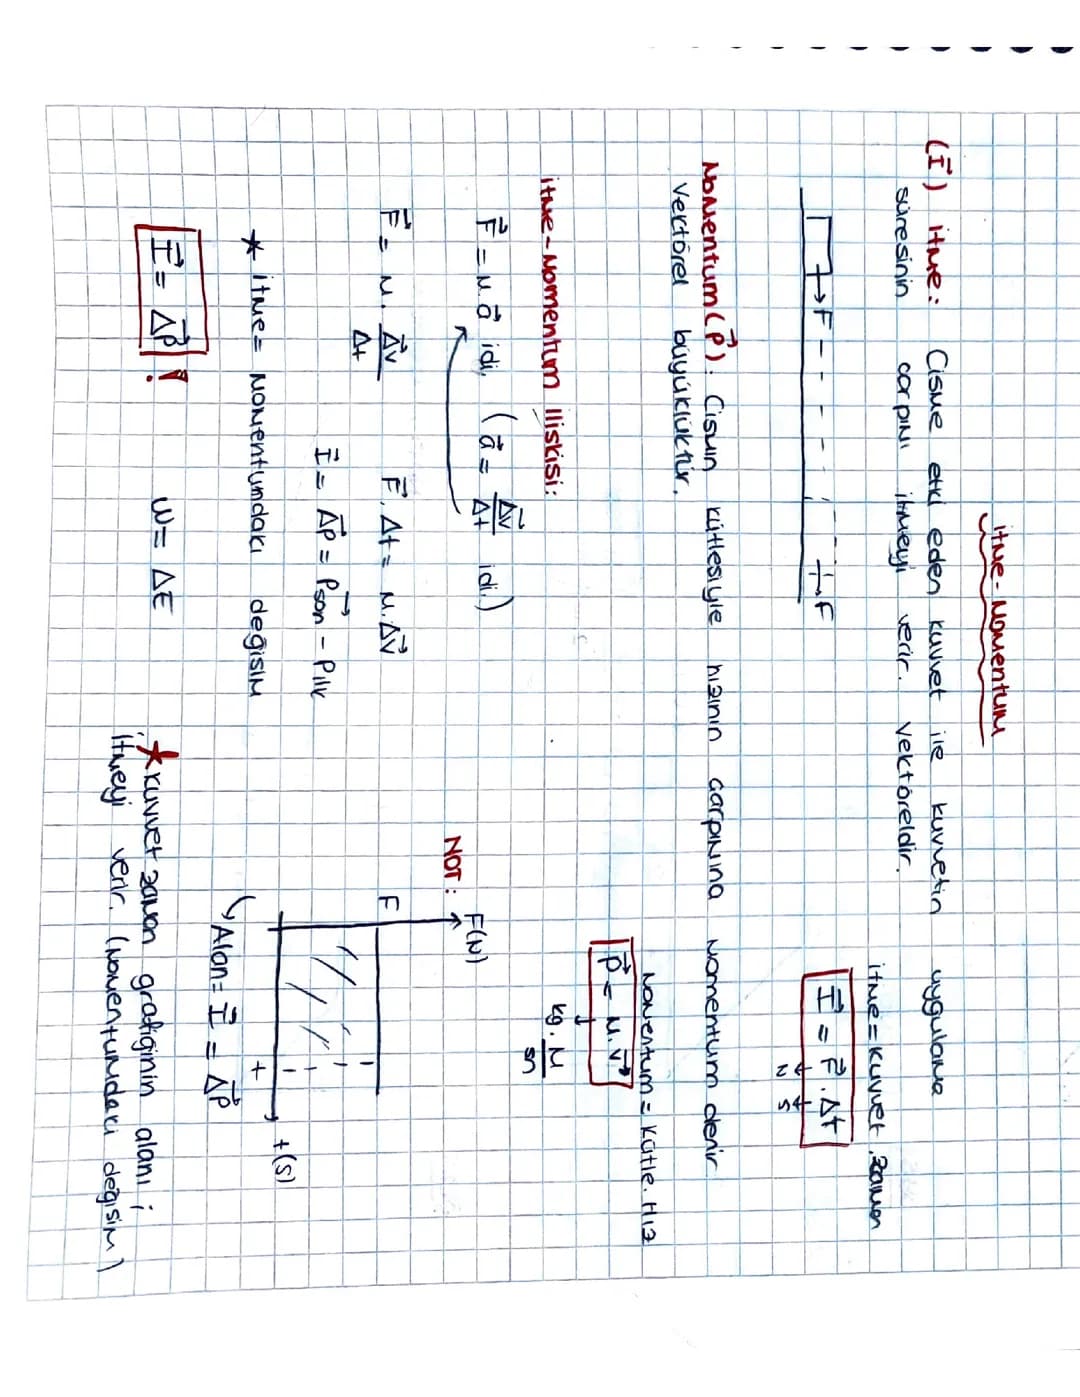 itme - Momentum
(I⃗) itme: Cisme etki eden kuvvet ile kuvvetin uygulama
süresinin çarpımı itmeyi verir. Vektöreldir.
F F
itme = kuvvet . zaman
I⃗ = F⃗ . Δt
N s
Momentum (P⃗): Cismin kütlesiyle hızının çarpımına momentum denir
Vektörel büyüklüktür.
Momentum = kütle . Hız
P⃗ = m . V⃗
kg . m/s
itme - Momentum İlişkisi:
F⃗ = m a⃗ idi, (a⃗ = Δv⃗/Δt idi.)
F⃗ = m . Δv⃗/Δt F⃗ . Δt = m . Δv⃗
I⃗ = ΔP⃗ = P⃗son - Pilk
* itme = Momentumdaki değişim
I⃗ = ΔP⃗ ! W = ΔE
NOT:
F(N)
F
t t(s)
Alan = I⃗ = ΔP⃗
* Kuvvet zaman grafiğinin alanı ;
itmeyi verir. (Momentumdaki değişim)